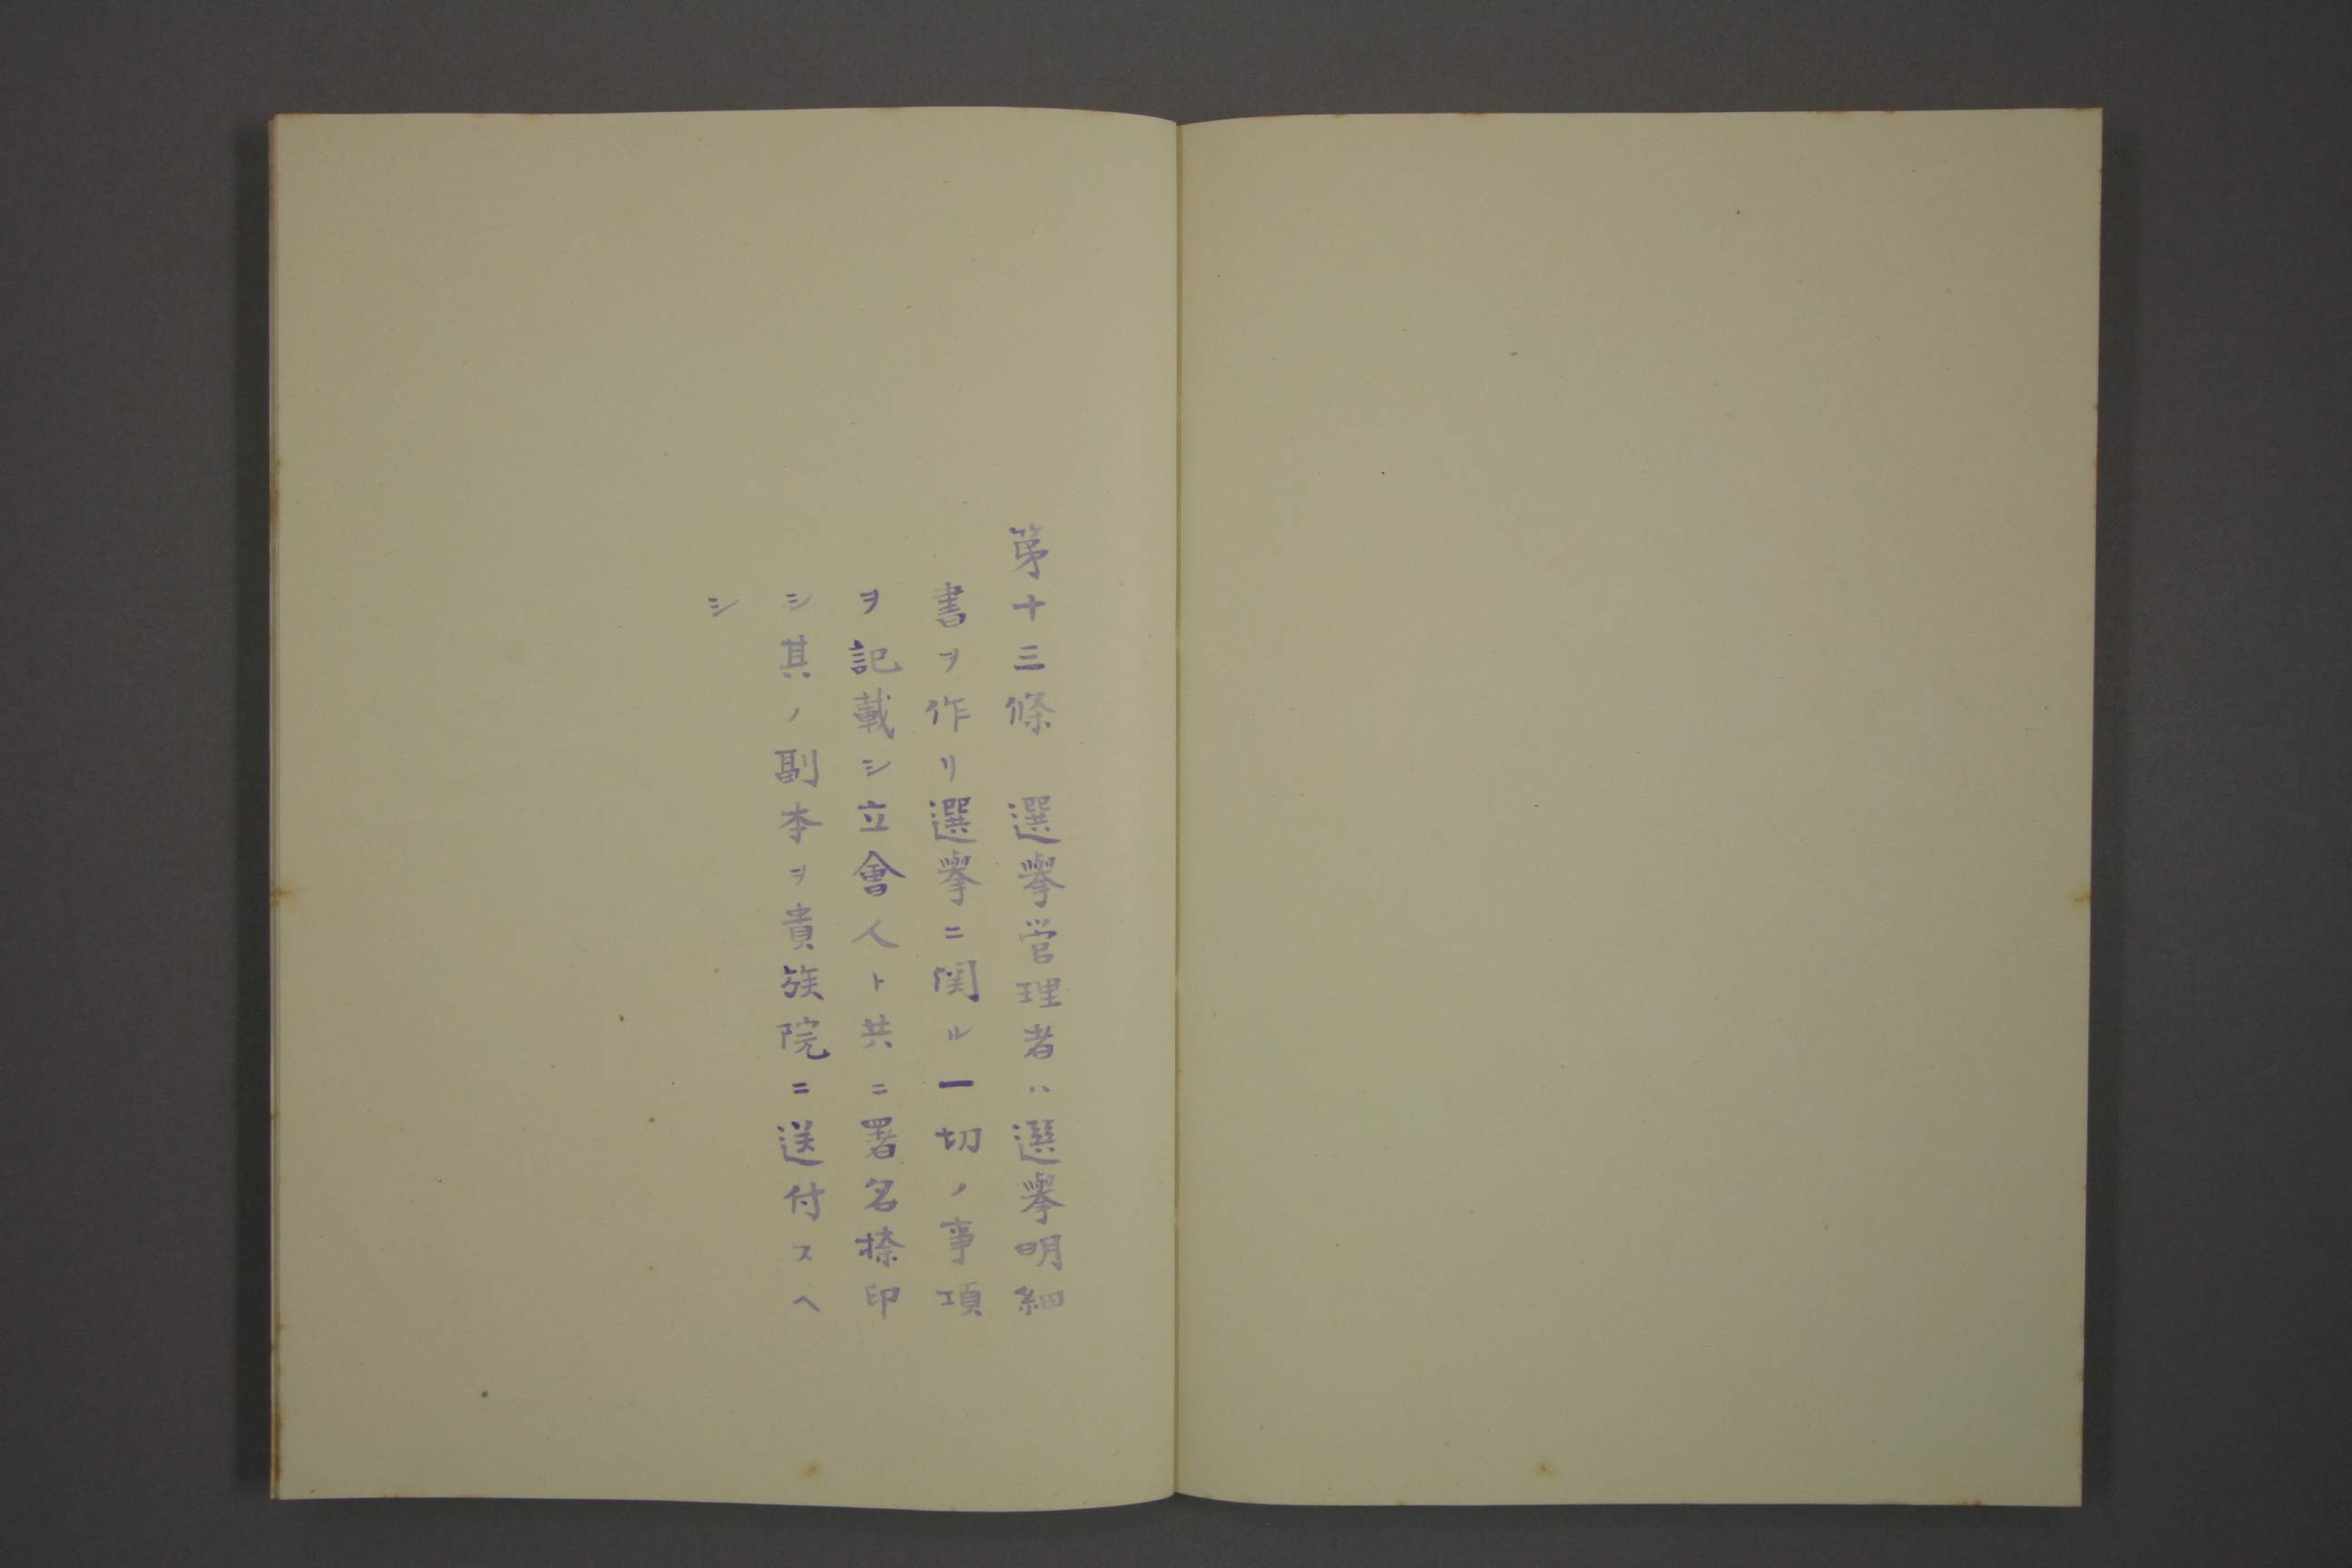 第十三條　選擧管理者ハ選擧明細
書ヲ作リ選擧ニ関ル一切ノ事項
ヲ記載シ立會人ト共ニ署名捺印
シ其ノ副本ヲ貴族院ニ送付スヘ
シ